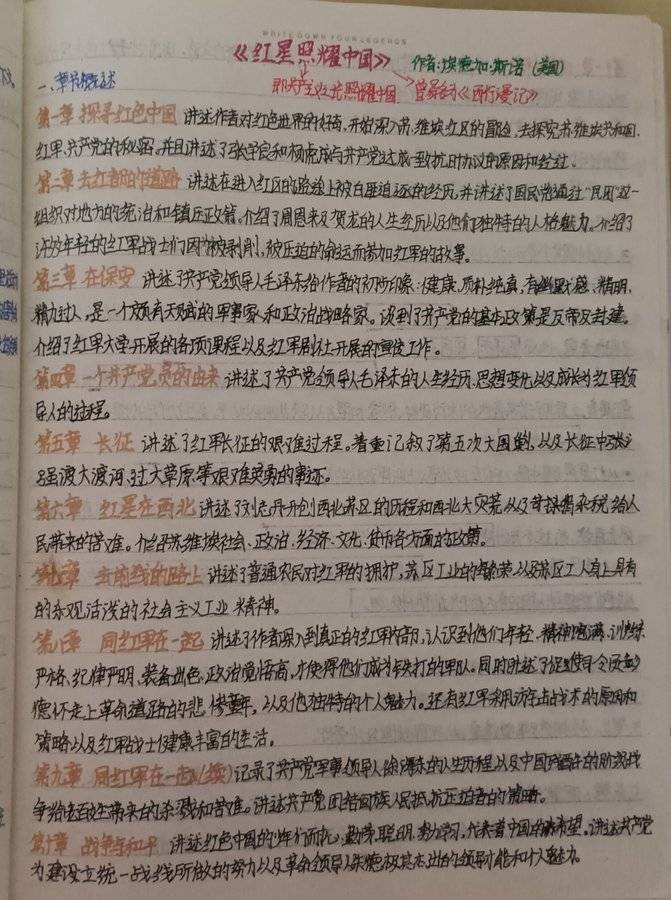 WRITE DOWN YOUR LEGENDS
《红星照耀中国》 作者:埃德加·斯诺 (美国)
即共产主义光照耀中国 曾易名为《西行漫记》
一、章节概述
第一章 探寻红色中国 讲述作者对红色世界的好奇,开始深入苏维埃红区的冒险,去探究苏维埃共和国、
红军、共产党的秘密。并且讲述了张学良和杨虎城与共产党达成一致抗日协议的原因和经过。
第二章 去红都的道路 讲述在进入红区的路途上被白匪追逐的经历,并讲述了国民党通过"民团"这一
组织对地方的统治和镇压政策。介绍了周恩来及贺龙的人生经历以及他们独特的人格魅力。介绍了
许多年轻的红军战士们因为被剥削,被压迫的命运而参加红军的故事。
第三章 在保安 讲述了共产党领导人毛泽东给作者的初步印象:健康、质朴纯真,有幽默感、精明、
精力过人,是一个颇有天赋的军事家和政治战略家。谈到了共产党的基本政策是反帝反封建。
介绍了红军大学开展的各项课程以及红军剧社开展的宣传工作。
第四章 一个共产党员的由来 讲述了共产党领导人毛泽东的人生经历、思想变化以及成长为红军领
导人的过程。
第五章 长征 讲述了红军长征的艰难过程。着重记叙了第五次大围剿,以及长征中
强渡大渡河,过大草原等艰难英勇的事迹。
第六章 红星在西北 讲述了刘志丹开创西北苏区的历程和西北大灾荒以及苛捐杂税给人
民带来的苦难。介绍苏维埃社会、政治、经济、文化、货币各方面的政策。
第七章 去前线的路上 讲述了普通农民对红军的拥护,苏区工业的繁荣以及苏区工人身上具有
的乐观活泼的社会主义工业精神。
第八章 同红军在一起 讲述了作者深入到真正的红军内部,认识到他们年轻、精神饱满、训练
严格、纪律严明、装备出色、政治觉悟高,才使得他们成为铁打的军队。同时讲述了司令员彭
德怀走上革命道路的悲惨童年,以及他独特的个人魅力。还有红军采用游击战术的原因和
策略以及红军战士健康丰富的生活。
第九章 同红军在一起(续) 记录了共产党军事领导人徐海东的人生历程以及中国阶级的战
争给百姓带来的杀戮和苦难。讲述共产党团结回族人民抵抗压迫者的策略。
第十章 战争与和平 讲述红色中国的少年们耐心,勤劳,聪明,努力学习,代表着中国的希望。讲述共产党
为建设立统一战线所做的努力以及革命领导人朱德极其杰出的领导才能和个人魅力。